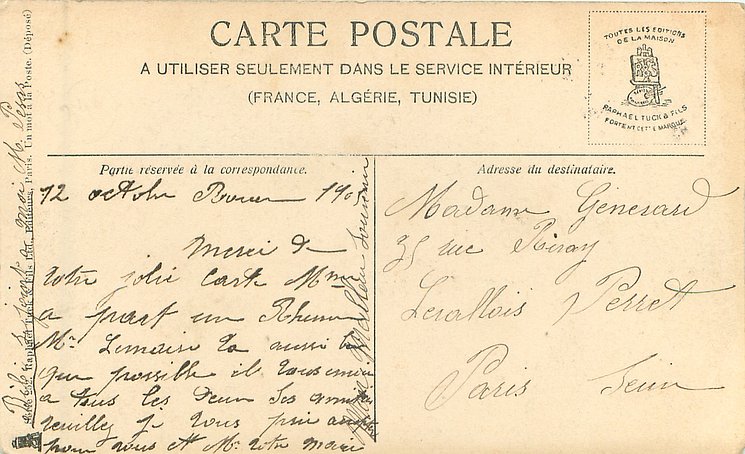 CARTE POSTALE
A UTILISER SEULEMENT DANS LE SERVICE INTÉRIEUR
(FRANCE, ALGÉRIE, TUNISIE)
TOUTES LES EDITIONS
DE LA MAISON
RAPHAEL TUCK & FILS
PORTENT CETTE MARQUE
Partie réservée à la correspondance.
12 octobre 190
Merci de
votre jolie carte Mme
a part un Rhume
Mr Lemaire va aussi
que possible il
a tous les deux ses
veuillez je vous prie
pour vous et Mr votre mari
Adresse du destinataire.
Madame Generard
35 rue
Levallois Perret
Paris Seine
Raphael Tuck & Fils Ltd., Editeurs, Paris. Un mot à la Poste. (Déposé)